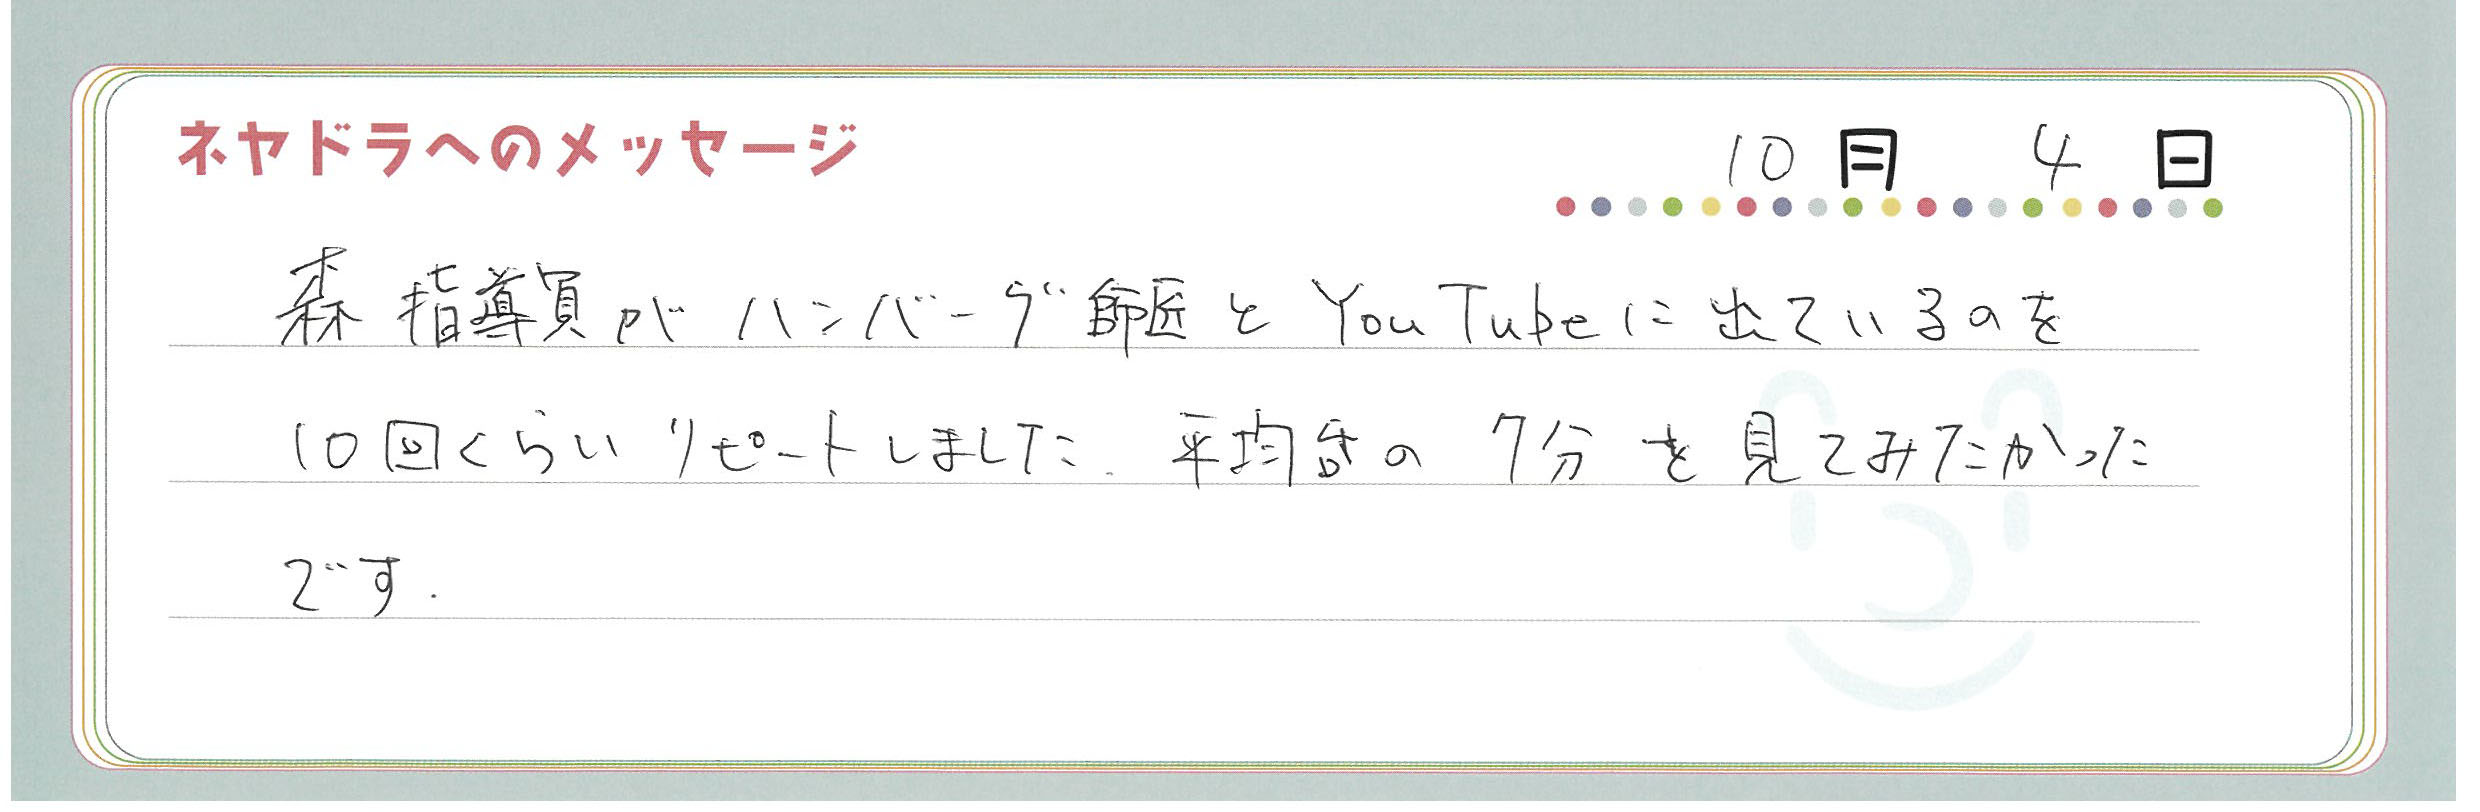 ネヤドラへのメッセージ
10月 4日
森指導員がハンバーグ師匠とYouTubeに出ているのを
10回くらいリピートしました. 平均台の 7分を見てみたかった
です.